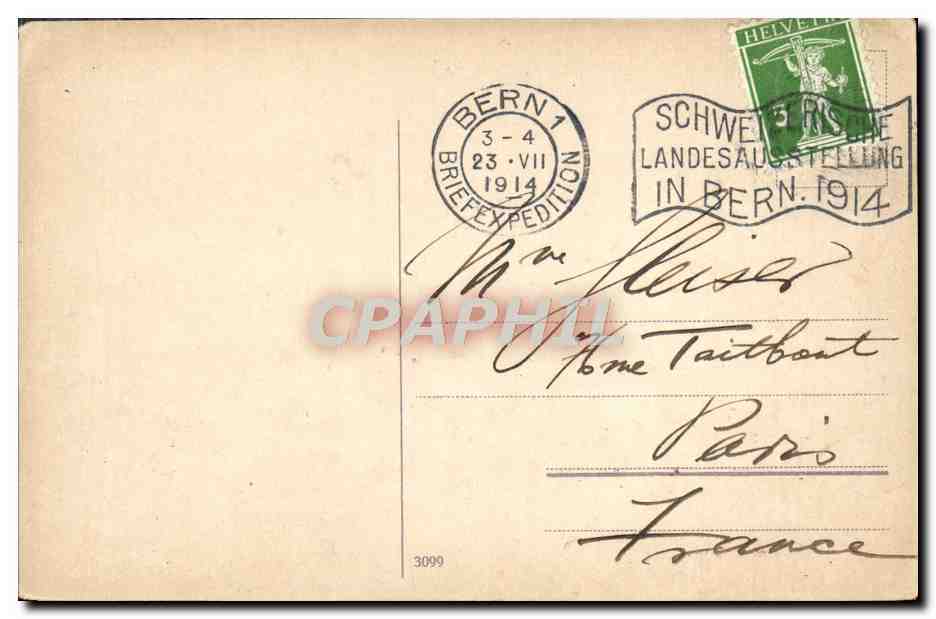 HELVETIA
BERN 1
3-4
23·VII
1914
BRIEFEXPEDITION
SCHWEIZERISCHE
LANDESAUSSTELLUNG
IN BERN. 1914
5
CPAPHIL
Mme
rue Taitbout
Paris
France
3099